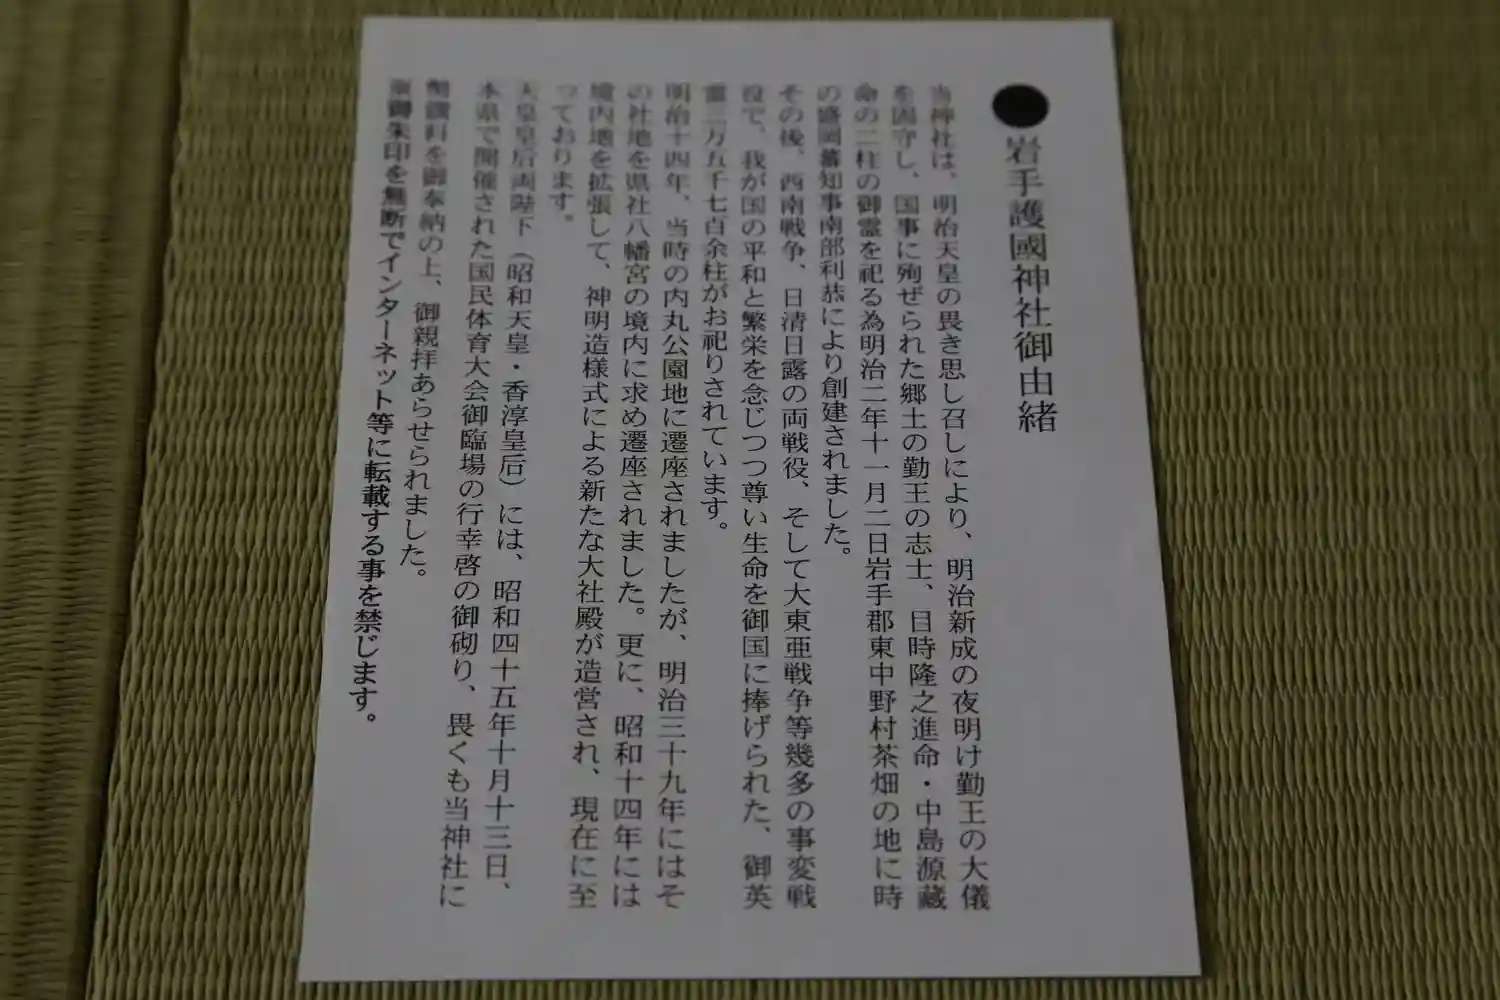 ●岩手護國神社御由緒
当神社は、明治天皇の畏き思し召しにより、明治新成の夜明け勤王の大儀
を固守し、国事に殉ぜられた郷土の勤王の志士、目時隆之進命・中島源藏
命の二柱の御霊を祀る為明治二年十一月二日岩手郡東中野村茶畑の地に時
の盛岡藩知事南部利恭により創建されました。
その後、西南戦争、日清日露の両戦役、そして大東亜戦争等幾多の事変戦
役で、我が国の平和と繁栄を念じつつ尊い生命を御国に捧げられた、御英
霊三万五千七百余柱がお祀りされています。
明治十四年、当時の内丸公園地に遷座されましたが、明治三十九年にはそ
の社地を県社八幡宮の境内に求め遷座されました。更に、昭和十四年には
境内地を拡張して、神明造様式による新たな大社殿が造営され、現在に至
っております。
天皇皇后両陛下（昭和天皇・香淳皇后）には、昭和四十五年十月十三日、
本県で開催された国民体育大会御臨場の行幸啓の御砌り、畏くも当神社に
幣饌料を御奉納の上、御親拝あらせられました。
御朱印を無断でインターネット等に転載する事を禁じます。